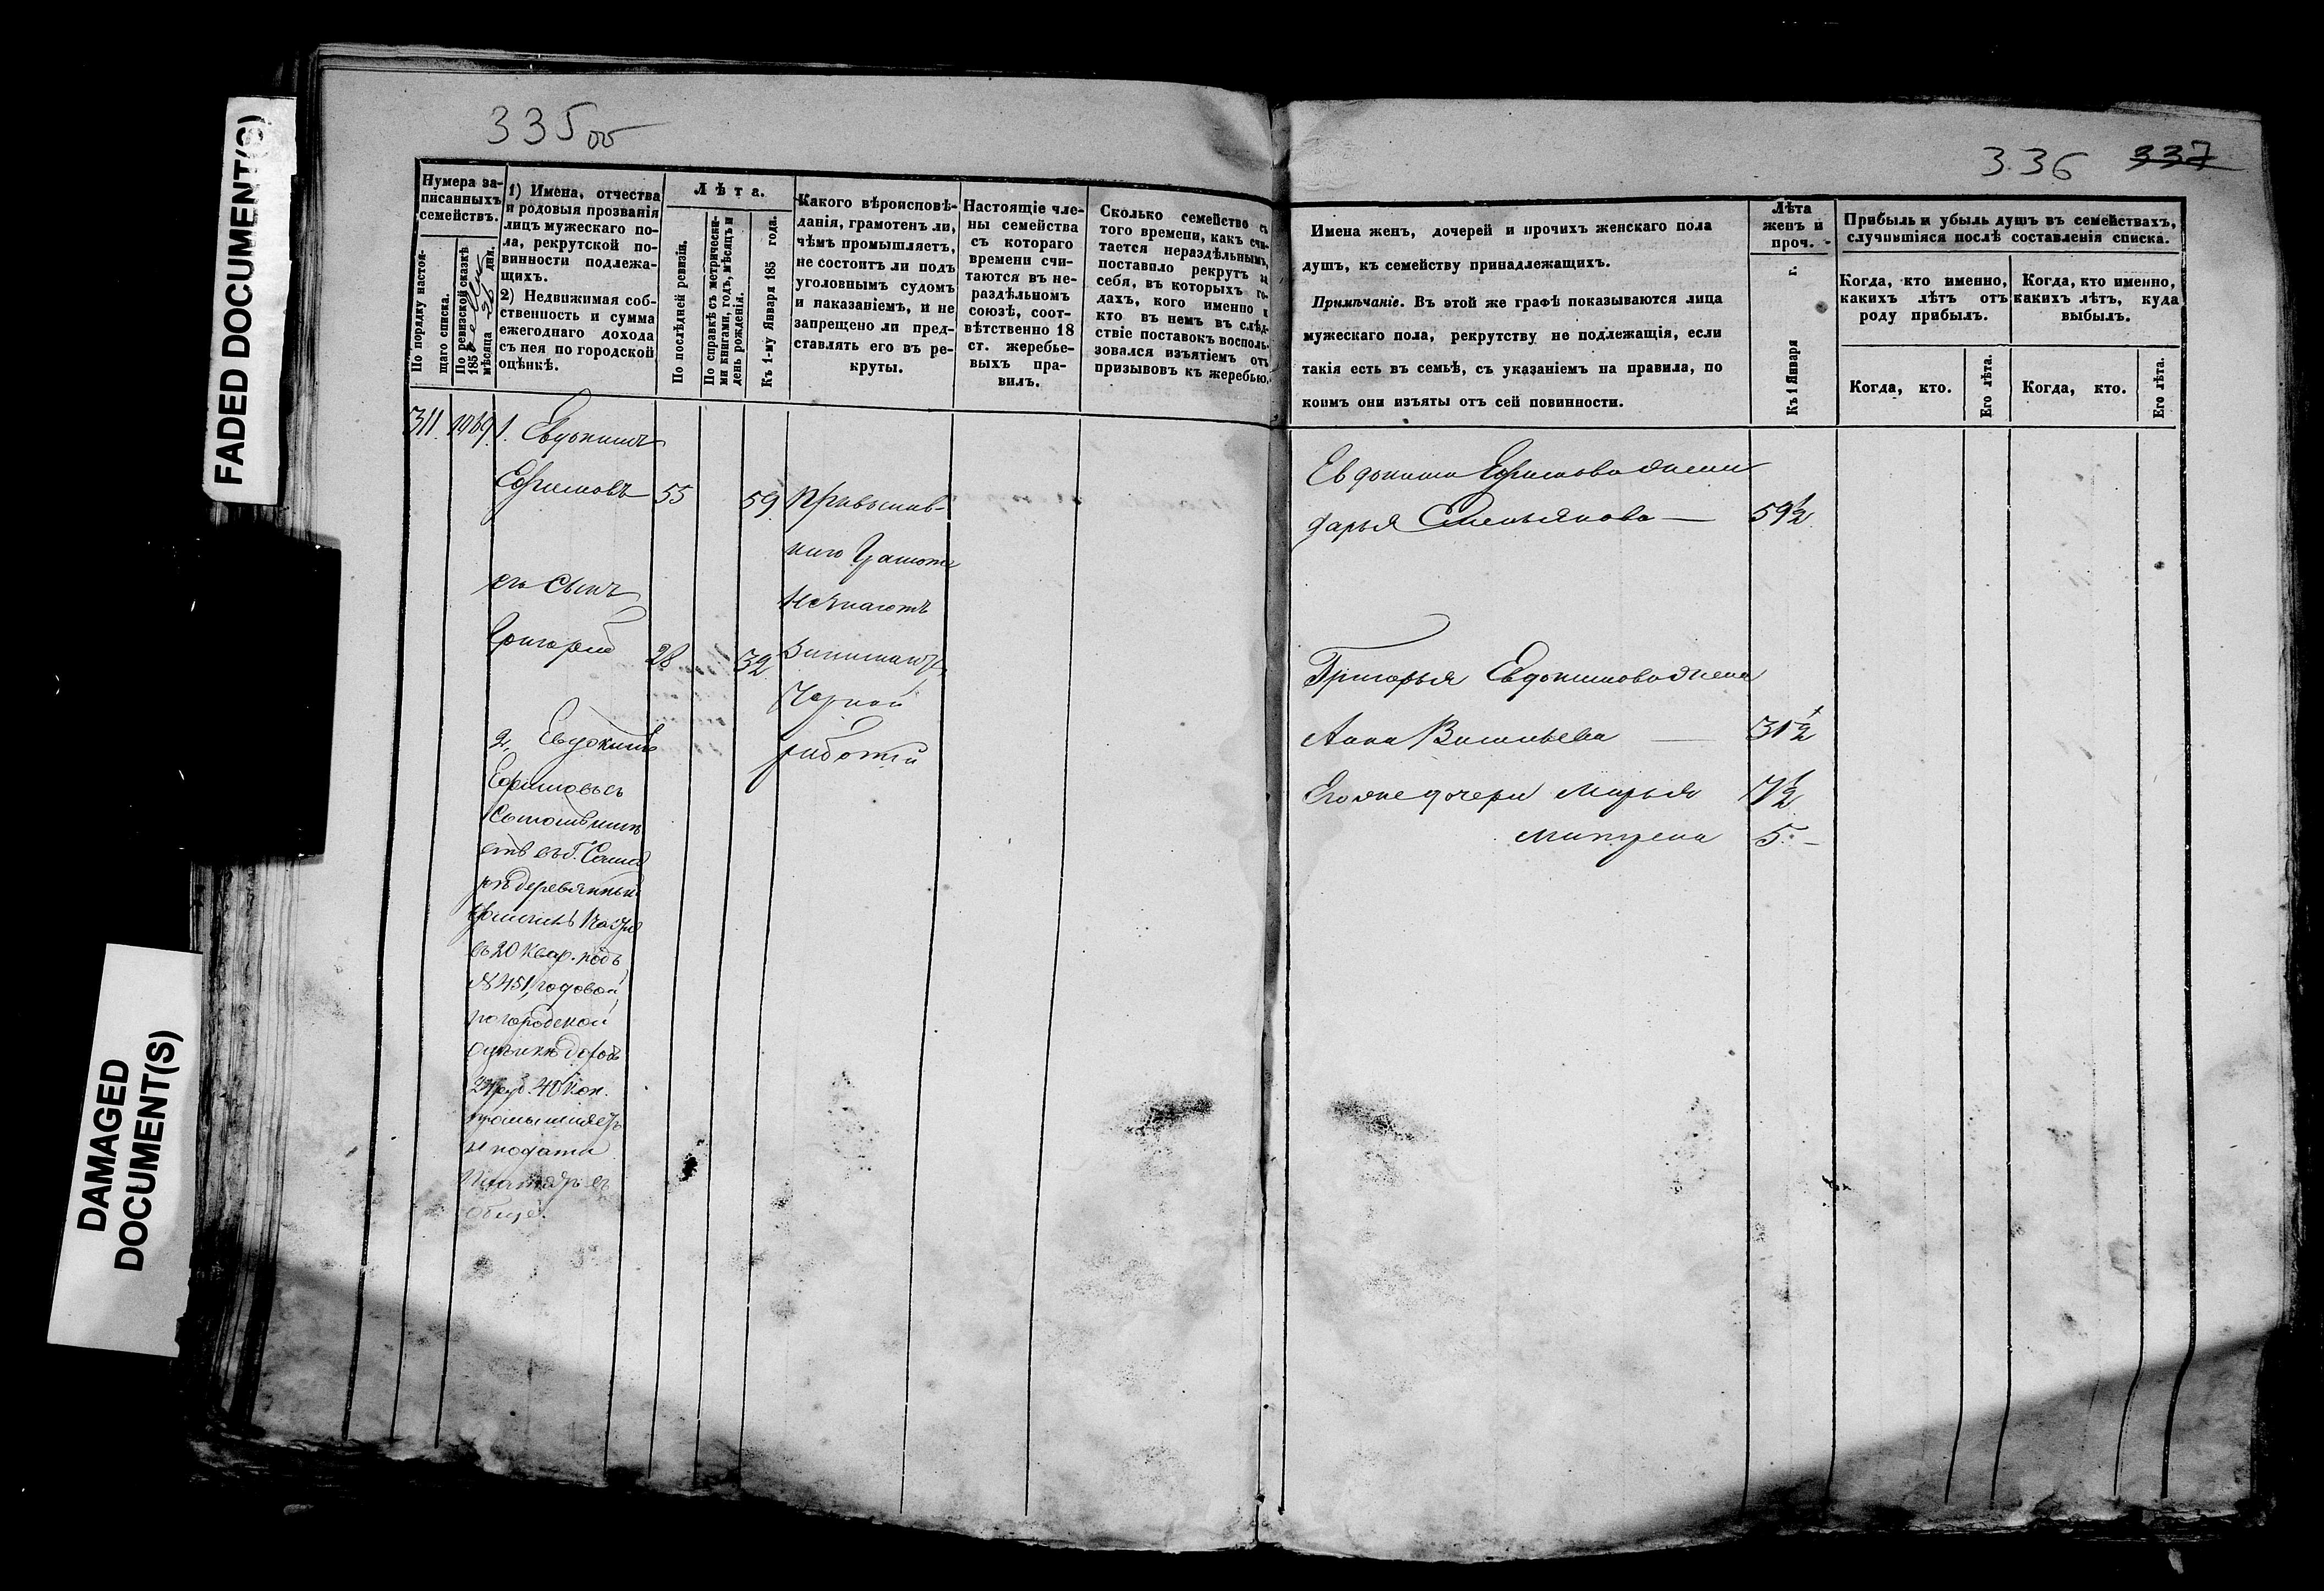 FADED DOCUMENT(S)
DAMAGED
DOCUMENT(S)
335 об
Нумера за-
писанныхъ
семействъ.
По порядку настоя-
щаго списка.
По ревизской сказкѣ
185
мѣсяца 21 дня.
1) Имена, отчества
и родовыя прозванія
лицъ мужескаго по-
ла, рекрутской по-
винности подлежа-
щихъ.
2) Недвижимая соб-
ственность и сумма
ежегоднаго дохода
съ нея по городской
оцѣнкѣ.
Лѣта.
По послѣдней ревизіи.
По справкѣ съ метрически-
ми книгами, годъ, мѣсяцъ и
день рожденія.
Къ 1-му Января 185 года.
Какого вѣроисповѣ-
данія, грамотенъ ли,
чѣмъ промышляетъ,
не состоитъ ли подъ
уголовнымъ судомъ
и наказаніемъ, и не
запрещено ли пред-
ставлять его въ ре-
круты.
Настоящіе чле-
ны семейства
съ котораго
времени счи-
таются въ не-
раздѣльномъ
союзѣ, соот-
вѣтственно 18
ст. жеребье-
выхъ пра-
вилъ.
Сколько семейство съ
того времени, какъ счи-
тается нераздѣльнымъ,
поставило рекрутъ за
себя, въ которыхъ го-
дахъ, кого именно и
кто въ немъ въ слѣд-
ствіе поставокъ восполь-
зовался изъятіемъ отъ
призывовъ къ жеребью.
311. 1069. 1. Евдокимъ
Ефимовъ 55 59 Православ-
наго Грамоте
его сынъ
не знаютъ
Григорій 28 32 занимаются
Черной
2, Евдокимъ
работой
Ефимовъ
въ г. Сама
рѣ деревянный
въ 20 квар. подъ
№ 451, годовой
по городской
оцѣнкѣ доходъ
руб. 40 коп.
промышляетъ
и подати
платятъ въ
обще.
336 337
Имена женъ, дочерей и прочихъ женскаго пола
душъ, къ семейству принадлежащихъ.
Примѣчаніе. Въ этой же графѣ показываются лица
мужескаго пола, рекрутству не подлежащія, если
такія есть въ семьѣ, съ указаніемъ на правила, по
коимъ они изъяты отъ сей повинности.
Лѣта
женъ и
проч.
Къ 1 Января г.
Прибыль и убыль душъ въ семействахъ,
случившіяся послѣ составленія списка.
Когда, кто именно,
какихъ лѣтъ отъ
роду прибылъ.
Когда, кто именно,
какихъ лѣтъ, куда
выбылъ.
Когда, кто.
Его лѣта.
Когда, кто.
Его лѣта.
Евдокима Ефимова жена
Дарья Емельянова — 59½
Григорья Евдокимова жена
Анна Васильева — 31½
Его же дочери Марья 7½
Матрена 5. –